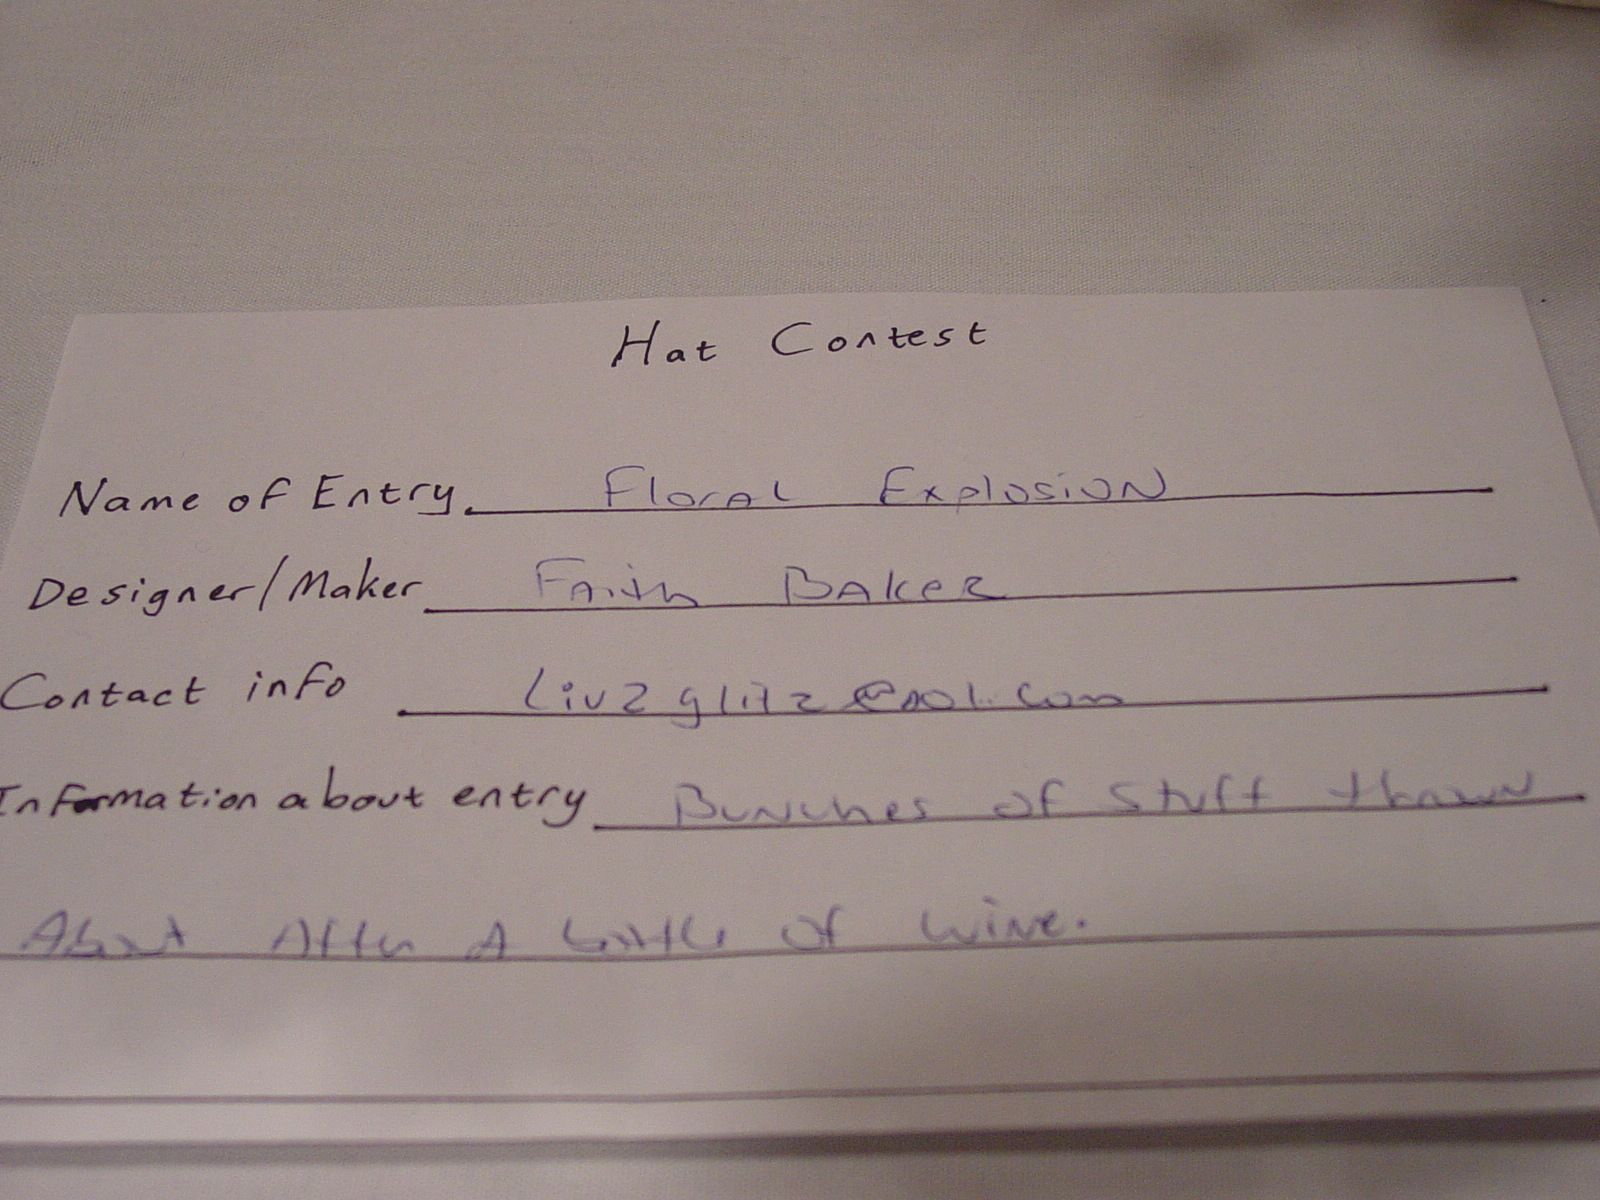 Hat Contest
Name of Entry Floral Explosion
Designer/Maker Faith Baker
Contact info Liv2glitz@aol.com
Information about entry Bunches of Stuff thrown
About After A bottle of wine.